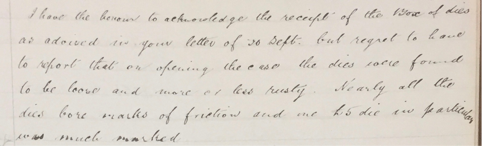 I have the honour to acknowledge the receipt of the Box of dies
as advised in your letter of 20 Sept. but regret to have
to report that on opening the case the dies were found
to be loose and more or less rusty. Nearly all the
dies bore marks of friction and one £5 die in particular
was much marked